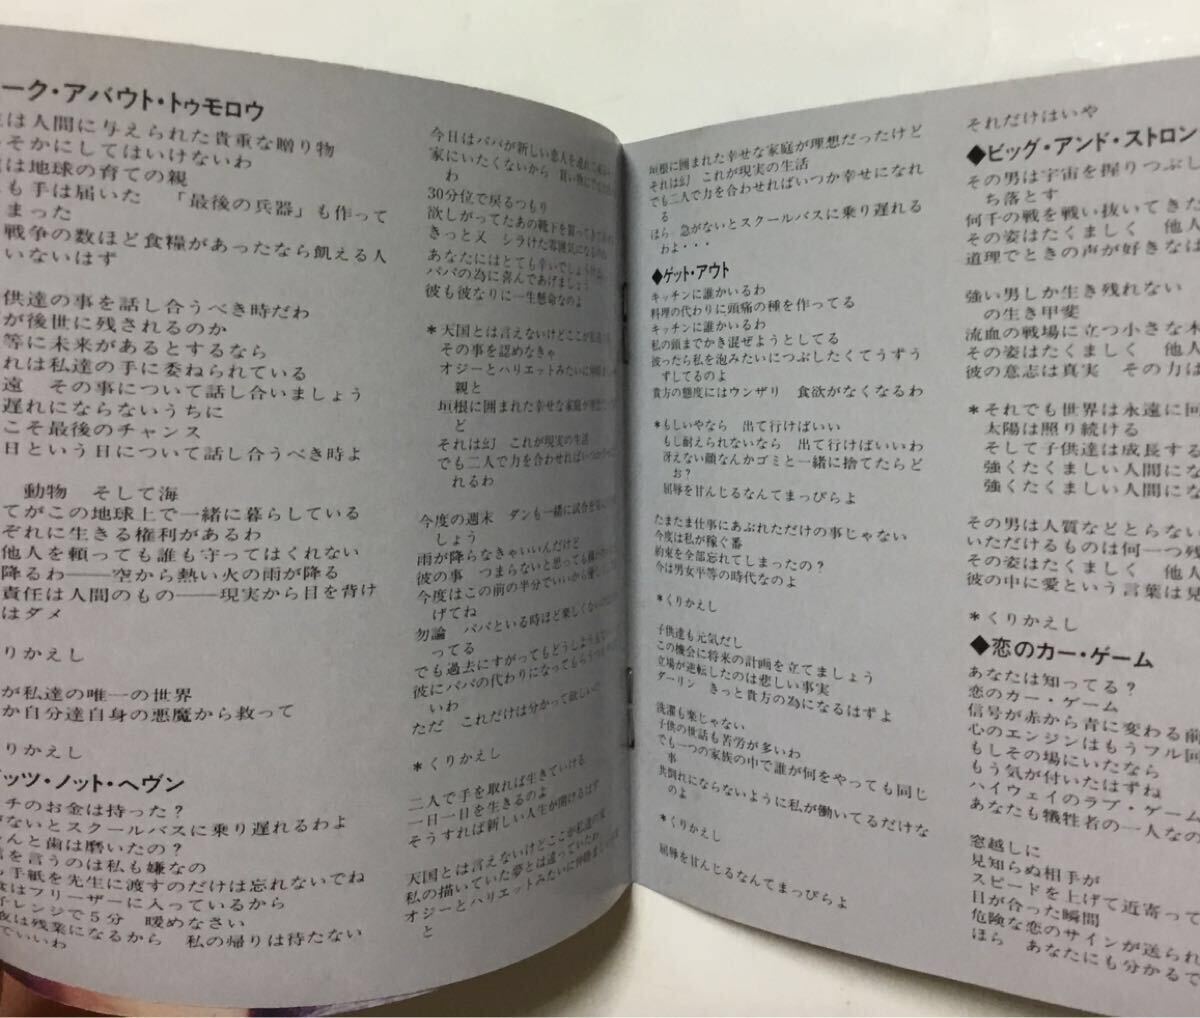 ーク・アバウト・トゥモロウ
は人間に与えられた貴重な贈り物
そかにしてはいけないわ
は地球の育ての親
も手は届いた 「最後の兵器」も作って
まった
戦争の数ほど食糧があったなら飢える人
いないはず
供達の事を話し合うべき時だわ
が後世に残されるのか
等に未来があるとするなら
れは私達の手に委ねられている
遠 その事について話し合いましょう
遅れにならないうちに
こそ最後のチャンス
日という日について話し合うべき時よ
動物 そして海
てがこの地球上で一緒に暮らしている
ぞれに生きる権利があるわ
他人を頼っても誰も守ってはくれない
降るわ――空から熱い火の雨が降る
責任は人間のもの――現実から目を背け
はダメ
くりかえし
が私達の唯一の世界
か自分達自身の悪魔から救って
くりかえし
ッツ・ノット・ヘヴン
チのお金は持った？
ないとスクールバスに乗り遅れるわよ
んと歯は磨いたの？
を言うのは私も嫌なの
手紙を先生に渡すのだけは忘れないでね
はフリーザーに入っているから
子レンジで５分 暖めなさい
夜は残業になるから 私の帰りは待たない
ていいわ
今日はパパが新しい恋人を
家にいたくないから
わ
30分位で戻るつもり
欲しがってたあの靴下を買ってきて
きっと又 シラけた雰囲気になるの
あなたにはとても辛いでしょう
パパの為に喜んであげましょう
彼も彼なりに一生懸命なのよ
＊天国とは言えないけどここが私達の
その事を認めなきゃ
オジーとハリエットみたいに仲睦
親と
垣根に囲まれた幸せな家庭が理想だっ
ど
それは幻 これが現実の生活
でも二人で力を合わせればいつか
れるわ
今度の週末 ダンも一緒に試合を
しょう
雨が降らなきゃいいんだけど
彼の事 つまらないと思っても
今度はこの前の半分でいいから
げてね
勿論 パパといる時ほど楽しくない
ってる
でも過去にすがってもどうしよう
彼にパパの代わりになってもらう
いわ
ただ これだけは分かって欲しいの
＊くりかえし
二人で手を取れば生きていける
一日一日を生きるのよ
そうすれば新しい人生が開けるはず
天国とは言えないけどここが私達の家
私の描いていた夢とは違っていたわ
オジーとハリエットみたいに仲睦まじい
と
垣根に囲まれた幸せな家庭が理想だったけど
それは幻 これが現実の生活
でも二人で力を合わせればいつか幸せになれ
る
ほら 急がないとスクールバスに乗り遅れる
わよ・・・
◆ゲット・アウト
キッチンに誰かいるわ
料理の代わりに頭痛の種を作ってる
キッチンに誰かいるわ
私の頭までかき混ぜようとしてる
彼ったら私を泡みたいにつぶしたくてうずう
ずしてるのよ
貴方の態度にはウンザリ 食欲がなくなるわ
＊もしいやなら 出て行けばいい
もし耐えられないなら 出て行けばいいわ
冴えない顔なんかゴミと一緒に捨てたらど
お？
屈辱を甘んじるなんてまっぴらよ
たまたま仕事にあぶれただけの事じゃない
今度は私が稼ぐ番
約束を全部忘れてしまったの？
今は男女平等の時代なのよ
＊くりかえし
子供達も元気だし
この機会に将来の計画を立てましょう
立場が逆転したのは悲しい事実
ダーリン きっと貴方の為になるはずよ
洗濯も楽じゃない
子供の世話も苦労が多いわ
でも一つの家族の中で誰が何をやっても同じ
事
共倒れにならないように私が働いてるだけな
のよ
＊くりかえし
屈辱を甘んじるなんてまっぴらよ
それだけはいや
◆ビッグ・アンド・ストロン
その男は宇宙を握りつぶし
ち落とす
何千の戦を戦い抜いてきた
その姿はたくましく 他人
道理でときの声が好きなは
強い男しか生き残れない
の生き甲斐
流血の戦場に立つ小さな
その姿はたくましく 他人
彼の意志は真実 その力は
＊それでも世界は永遠に回
太陽は照り続ける
そして子供達は成長する
強くたくましい人間にな
強くたくましい人間にな
その男は人質などとらない
いただけるものは何一つ残
その姿はたくましく 他人
彼の中に愛という言葉は見
＊くりかえし
◆恋のカー・ゲーム
あなたは知ってる？
恋のカー・ゲーム
信号が赤から青に変わる前
心のエンジンはもうフル回
もしその場にいたなら
もう気が付いたはずね
ハイウェイのラブ・ゲーム
あなたも犠牲者の一人なの
窓越しに
見知らぬ相手が
スピードを上げて近寄って
目が合った瞬間
危険な恋のサインが送られ
ほら あなたにも分かるで